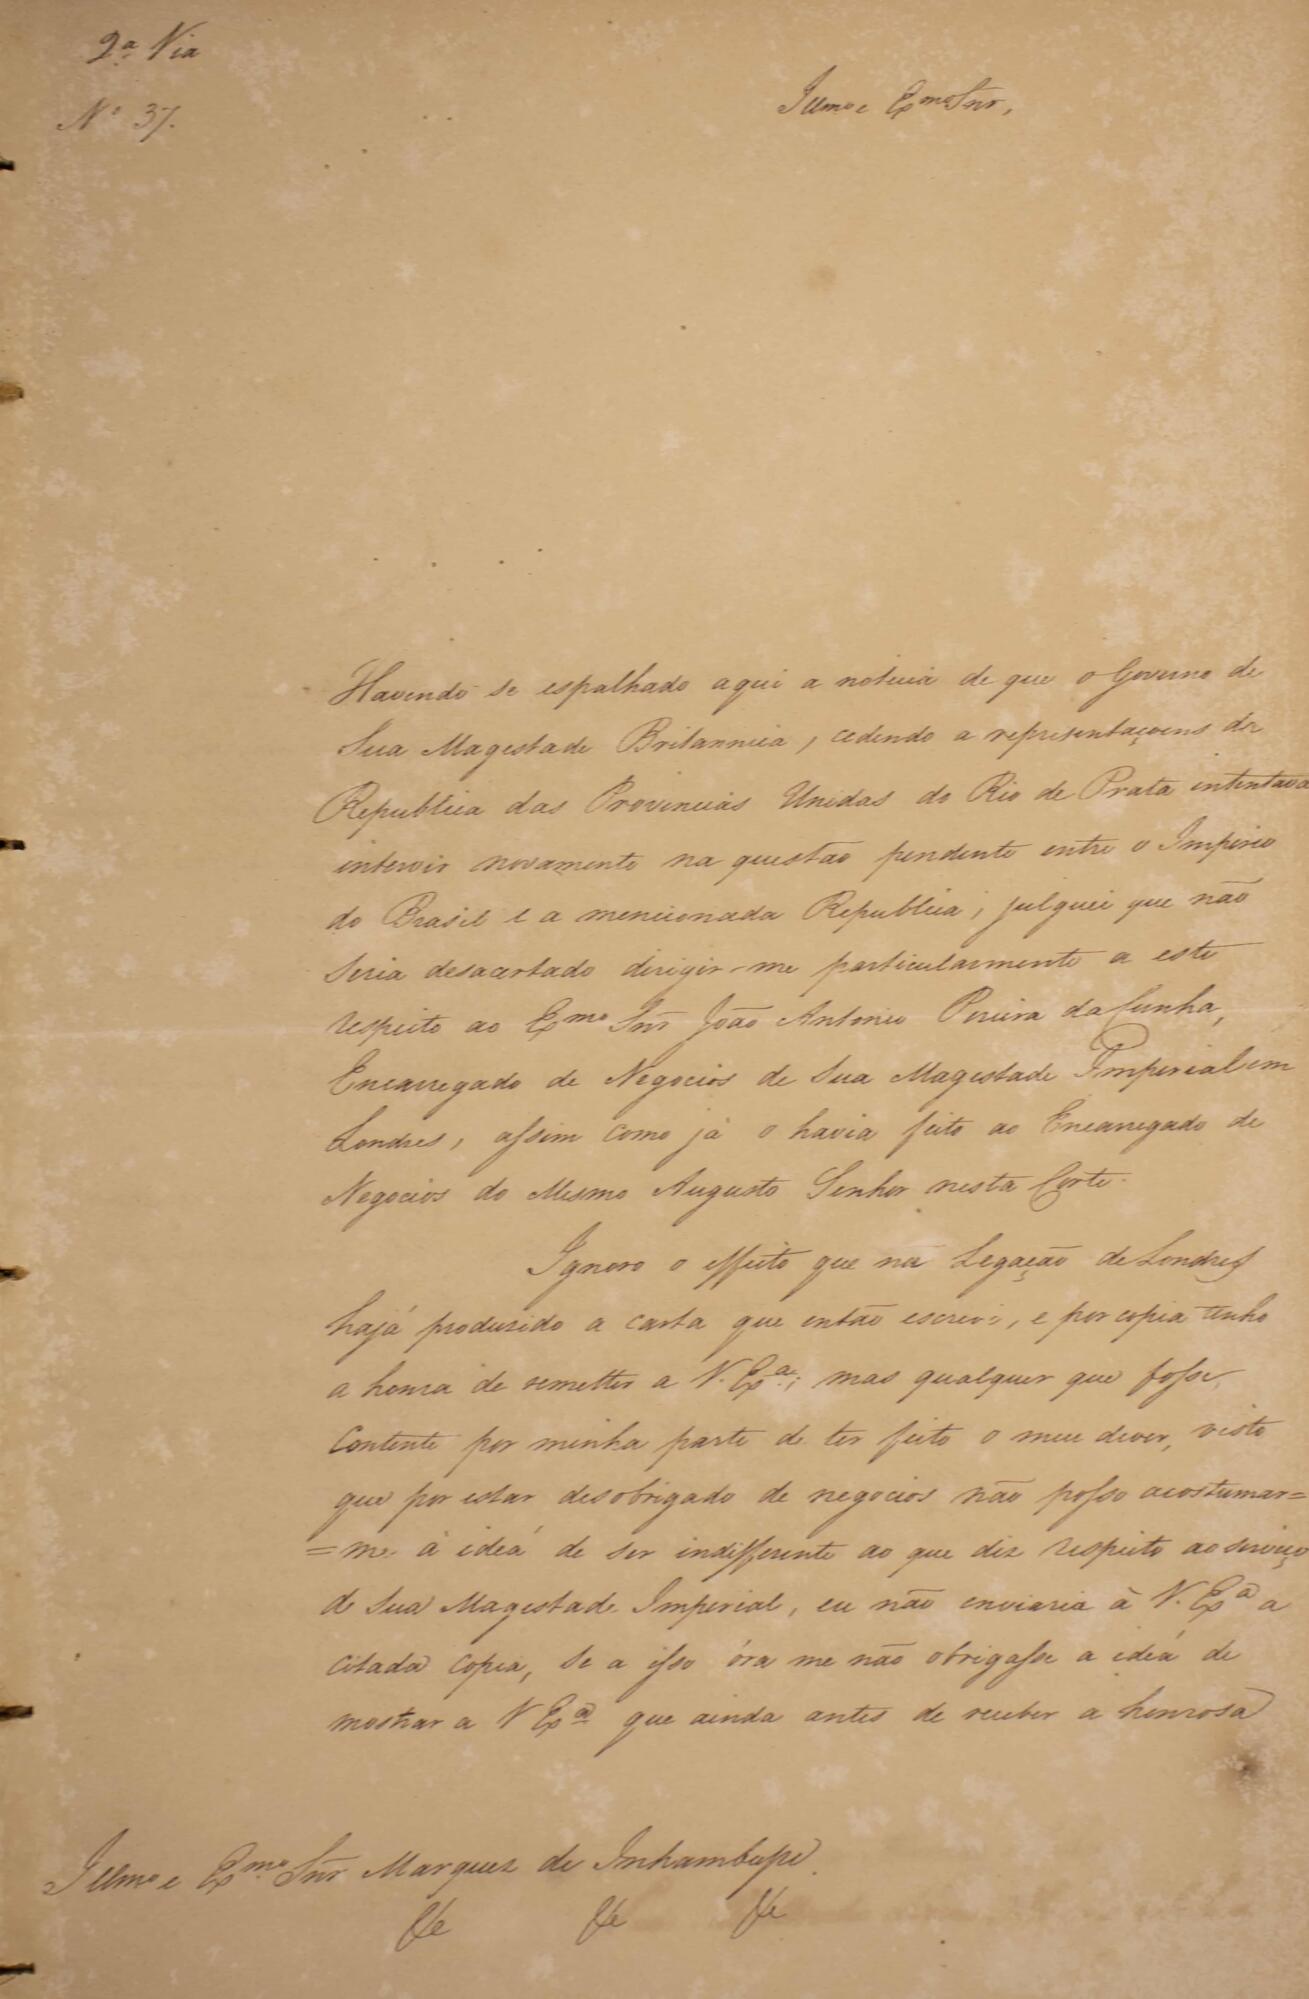 2.ª Via
Nº 37.
Illmo e Exmo Snr,
Havendo-se espalhado aqui a noticia de que o Governo de
Sua Magestade Britannica, cedendo a representaçoens da
Republica das Provincias Unidas do Rio de Prata intentava
intervir novamente na questão pendente entre o Imperio
do Brasil e a mencionada Republica; julguei que não
seria desacertado dirigir-me particularmente a este
respeito ao Exmo Snr João Antonio Pereira da Cunha,
Encarregado de Negocios de Sua Magestade Imperial em
Londres, assim como já o havia feito ao Encarregado de
Negocios do Mesmo Augusto Senhor nesta Corte.
Ignoro o effeito que na Legação de Londres
hajá produzido a carta que então escrevi, e por copia tenho
a honra de remetter a V. Exª.; mas qualquer que fosse,
contente por minha parte de ter feito o meu dever, visto
que por estar desobrigado de negocios não posso acostumar=
=me à ideá de ser indifferente ao que diz respeito ao serviço
de Sua Magestade Imperial, eu não enviaria à V. Exª a
citada copia, se a isso óra me não obrigasse a ideá de
mostrar a V Exª que ainda antes de receber a honrosa
Illmo e Exmo Snr Marquez de Inhambupe.
&c &c &c